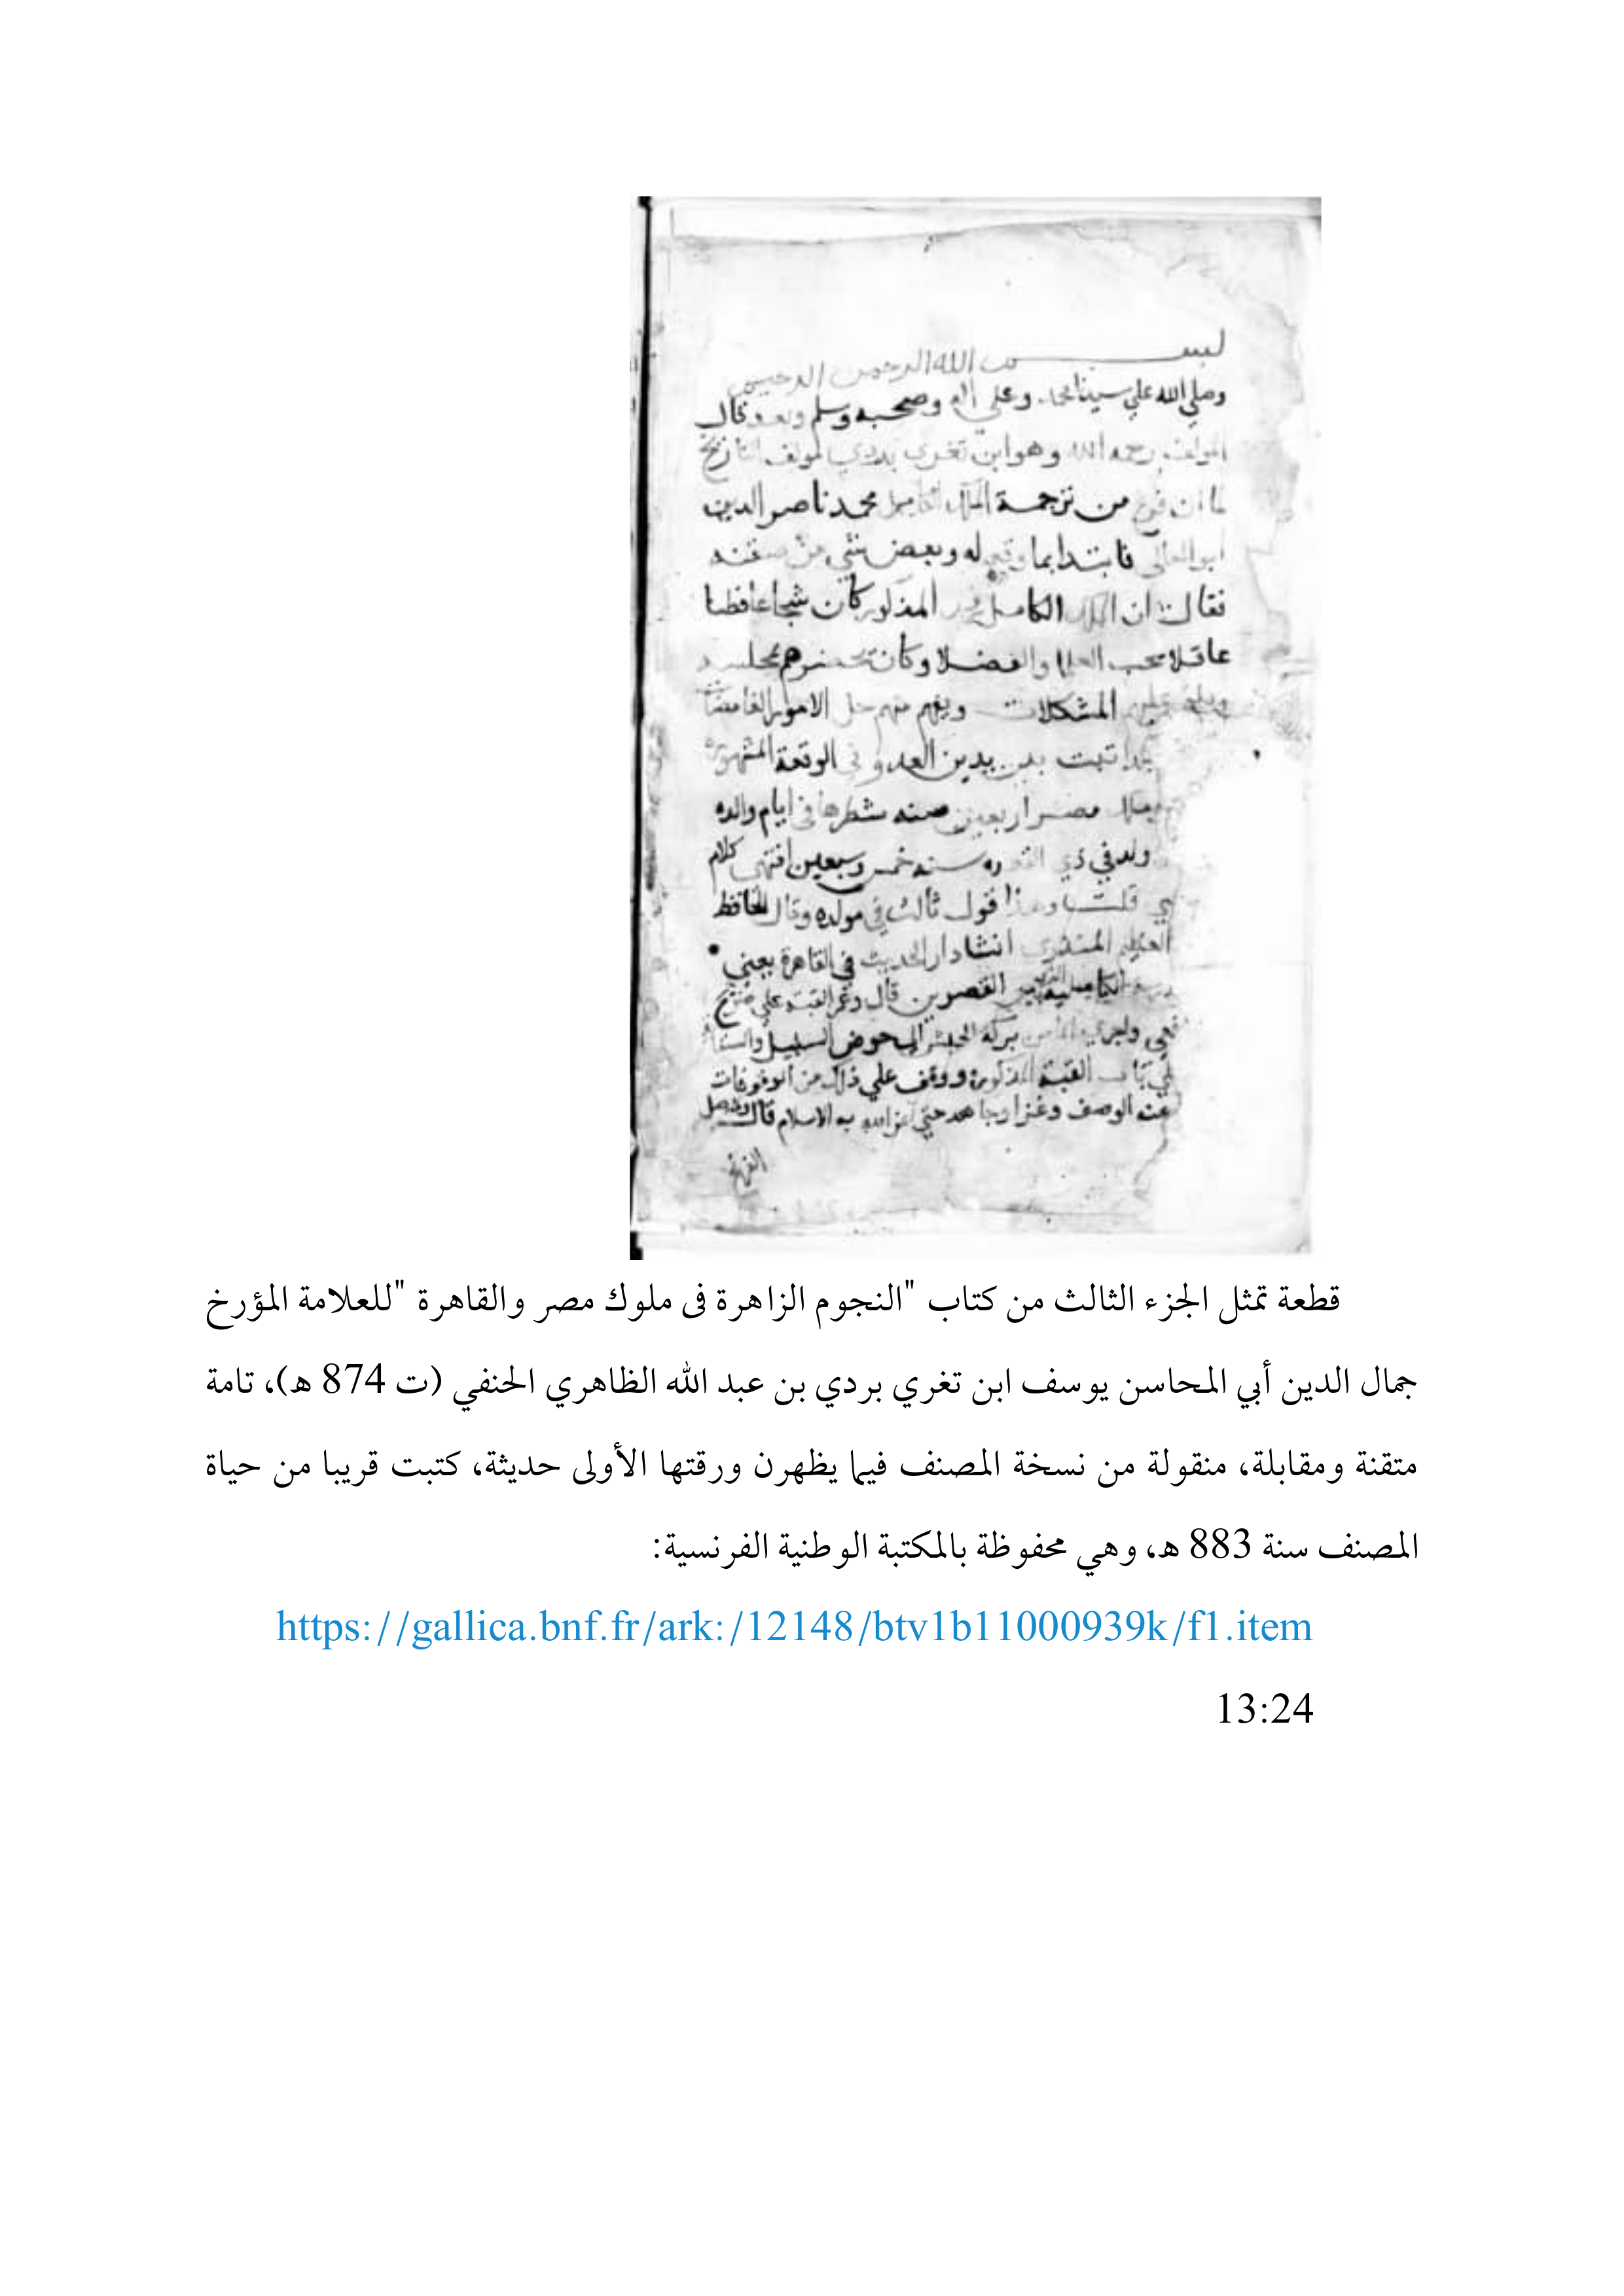 لبســـــــم الله الرحمن الرحيم
وصلي الله علي سيدنا محمد وعلي اله وصحبه وسلم وبعد قال
المولف رحمه الله وهو ابن تغري بردي مولف التاريخ
لما ان فرغ من ترجمة الملك الكامل محمد ناصر الدين
ابو المعالي فابتدا بما وقع له وبعض شي من صفته
فقال ان الملك الكامل محمد المذكور كان شجاعا فطنا
عاقلا محب العلما والفضلا وكان يحضرهم مجلسه
عليهم المشكلات ويفهم منهم حل الامور الغامضات
ثبت بين يدين العدو في الوقعة المشهورة
مصر اربعين سنه شطرها في ايام والده
ولد في ذي القعده سنه خمس وسبعين انتهي كلام
قلت وهذا قول ثالث في مولده وقال الحافظ
العظيم المنذري انشا دار الحديث في القاهرة يعني
الكاملية بين القصرين قال وعمر القبة علي ضريح
واجري الما من بركة الحبش الي حوض السبيل والسقا
باب القبة المذكورة ووقف علي ذلك من الوقوفات
عنه الوصف وغزا وجاهد حتي اعز الله به الاسلام قال
الفرنج
قطعة تمثل الجزء الثالث من كتاب "النجوم الزاهرة فى ملوك مصر والقاهرة "للعلامة المؤرخ
جمال الدين أبي المحاسن يوسف ابن تغري بردي بن عبد الله الظاهري الحنفي (ت 874 هـ)، تامة
متقنة ومقابلة، منقولة من نسخة المصنف فيما يظهرن ورقتها الأولى حديثة، كتبت قريبا من حياة
المصنف سنة 883 هـ، وهي محفوظة بالمكتبة الوطنية الفرنسية:
https://gallica.bnf.fr/ark:/12148/btv1b11000939k/f1.item
13:24